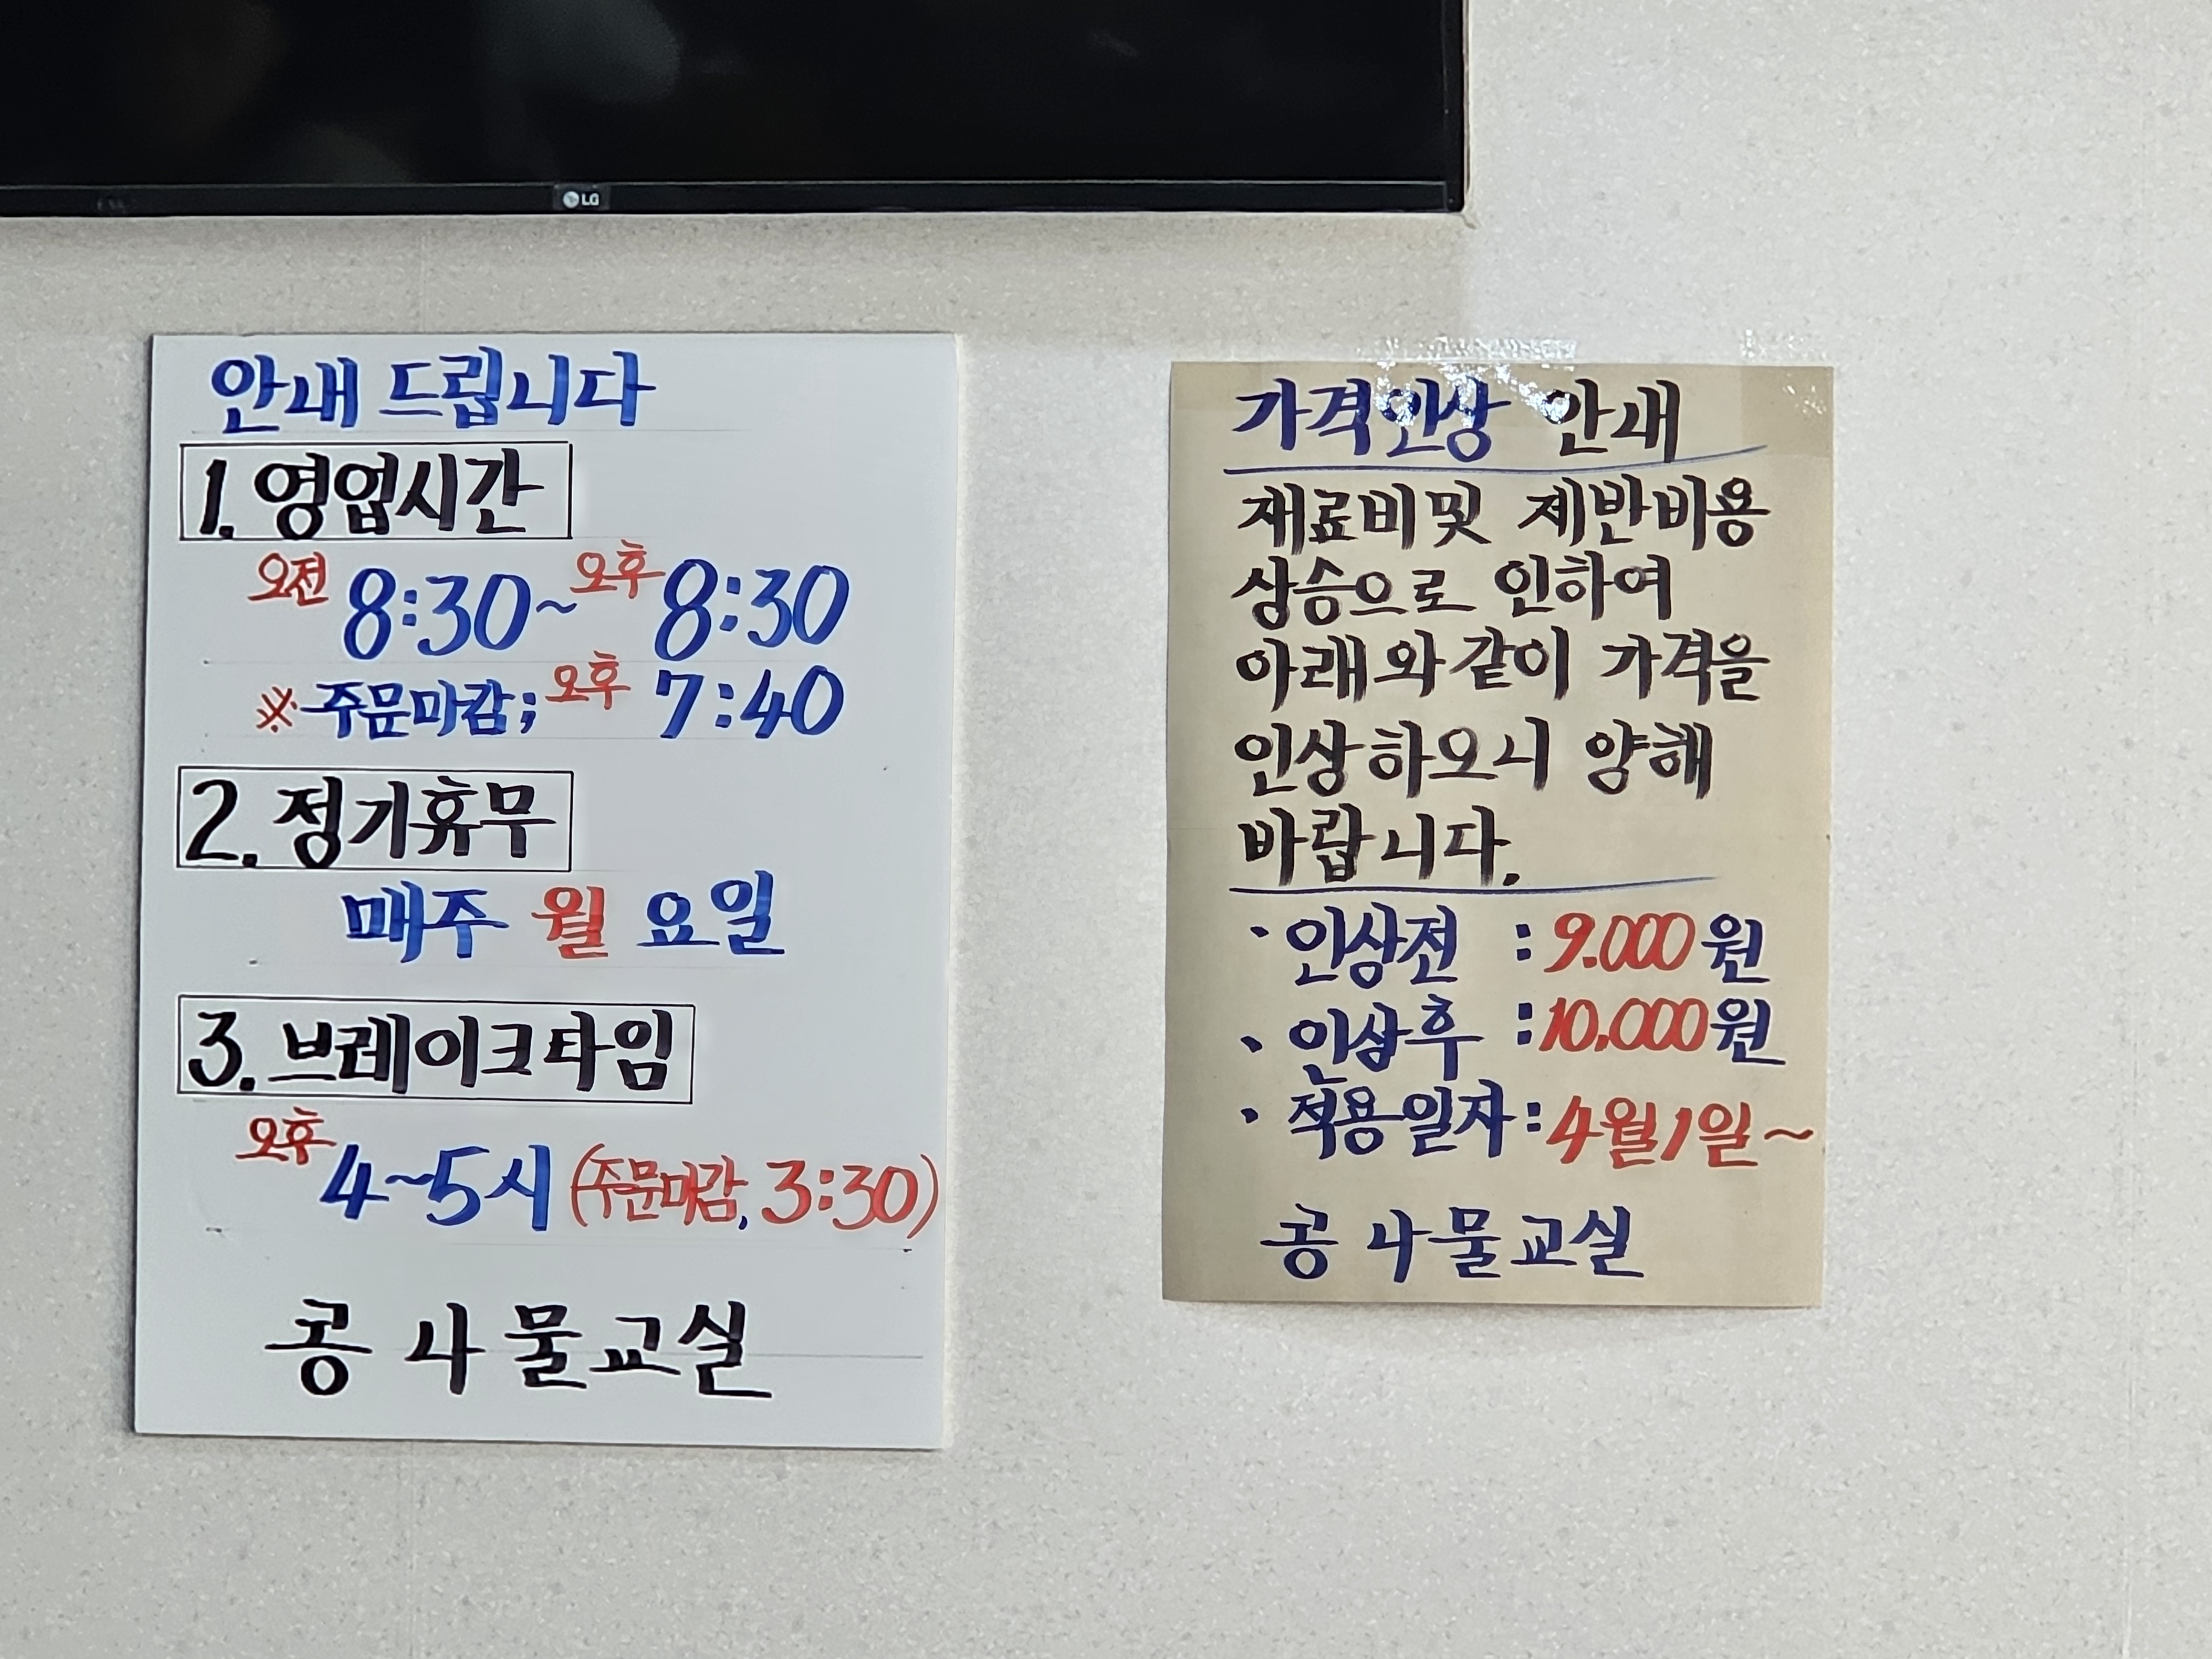 LG
안내 드립니다
1. 영업시간
오전 8:30~오후 8:30
※주문마감; 오후 7:40
2. 정기휴무
매주 월 요일
3. 브레이크타임
오후 4~5시 (주문마감, 3:30)
콩 나물교실
가격인상 안내
재료비및 제반비용
상승으로 인하여
아래와 같이 가격을
인상하오니 양해
바랍니다.
· 인상전 : 9.000원
· 인상후 : 10,000원
· 적용일자 : 4월1일~
콩 나물교실